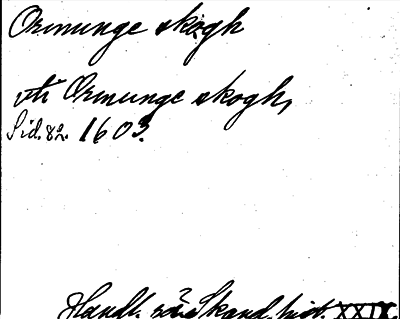 Ormunge skogh
uti Ormunge skogh,
Sid. 82. 1603.
Handl. rör. Skand. hist. XXIX.